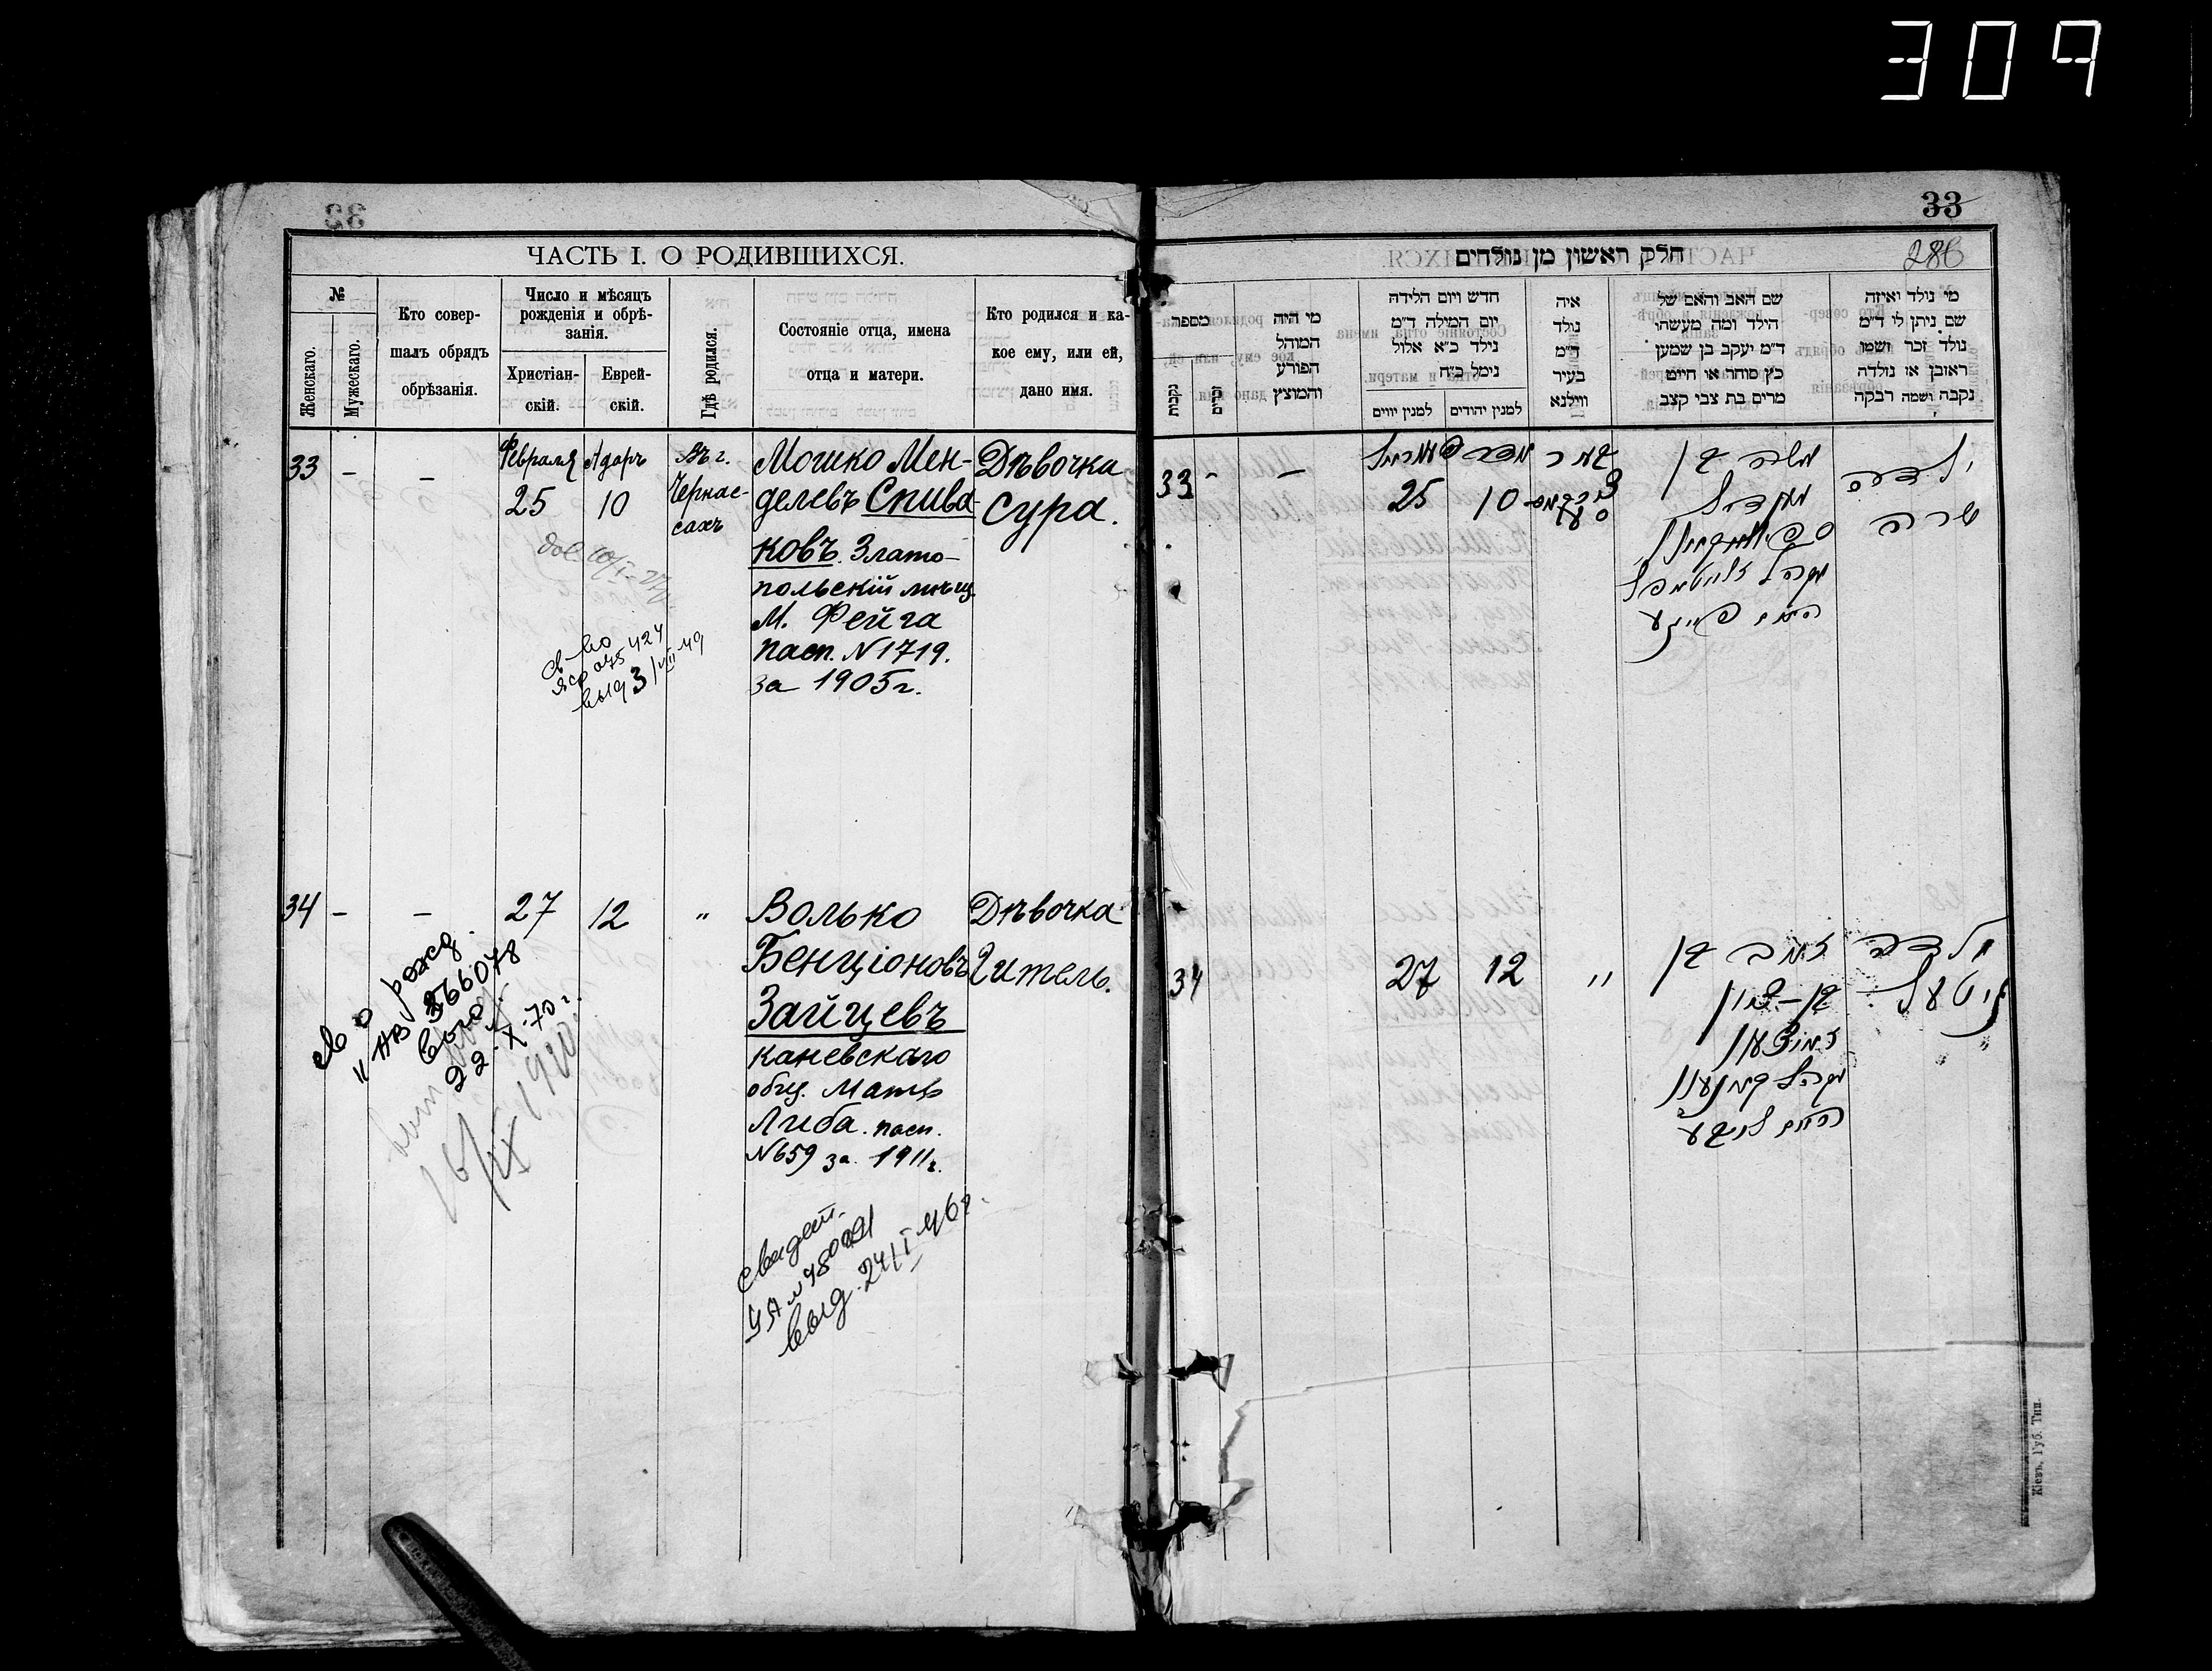 309
33
ЧАСТЬ I. О РОДИВШИХСЯ.
№
Женскаго.
Мужескаго.
Кто совер-
шалъ обрядъ
обрѣзанія.
Число и мѣсяцъ
рожденія и обрѣ-
занія.
Христіан-
скій.
Еврей-
скій.
Гдѣ родился.
Состояніе отца, имена
отца и матери.
Кто родился и ка-
кое ему, или ей,
дано имя.
33 – –
Февраля
25
Адаръ
10
Въ г.
Черкас-
сахъ
Мошко Мен-
делевъ Спива-
ковъ. Злато-
польскій мѣщ.
М. Фейга
пасп. N 1719.
за 1905 г.
Дѣвочка
Сура.
св-во
075424
выд 3/VII 49
34 – –
27
12
"
Волько
Бенціоновъ
Зайцевъ
каневскаго
общ. Мать
Либа. пасп.
N 659 за 1911 г.
Дѣвочка
Гитель.
св о рожд.
22·X·70 г.
16/IX 1940
свидет.
выд. 24/I
חלק ראשון מן נולדים
מספר
נקבות
זכרים
מי היה
המוהל
הפורע
והמוצץ
חדש ויום הלידה
יום המילה ד"מ
נילד כ"א אלול
נימל כ"ח
למנין יווים
למנין יהודים
איה
נולד
ד"מ
בעיר
ווילנא
שם האב והאם של
הילד ומה מעשהו
ד"מ יעקב בן שמען
כץ סוחר או חייט
מרים בת צבי קצב
מי נולד ואיזה
שם ניתן לו ד"מ
נולד זכר ושמו
ראובן או נולדה
נקבה ושמה רבקה
33 – –
פעווראל
25
אדר
10
משה בן
מענדיל
ילדה
שרה
34
27
12
"
זאב בן
בן-ציון
זאיצעוו
ילדה
גיטעל
Кіевъ, Губ. Тип.